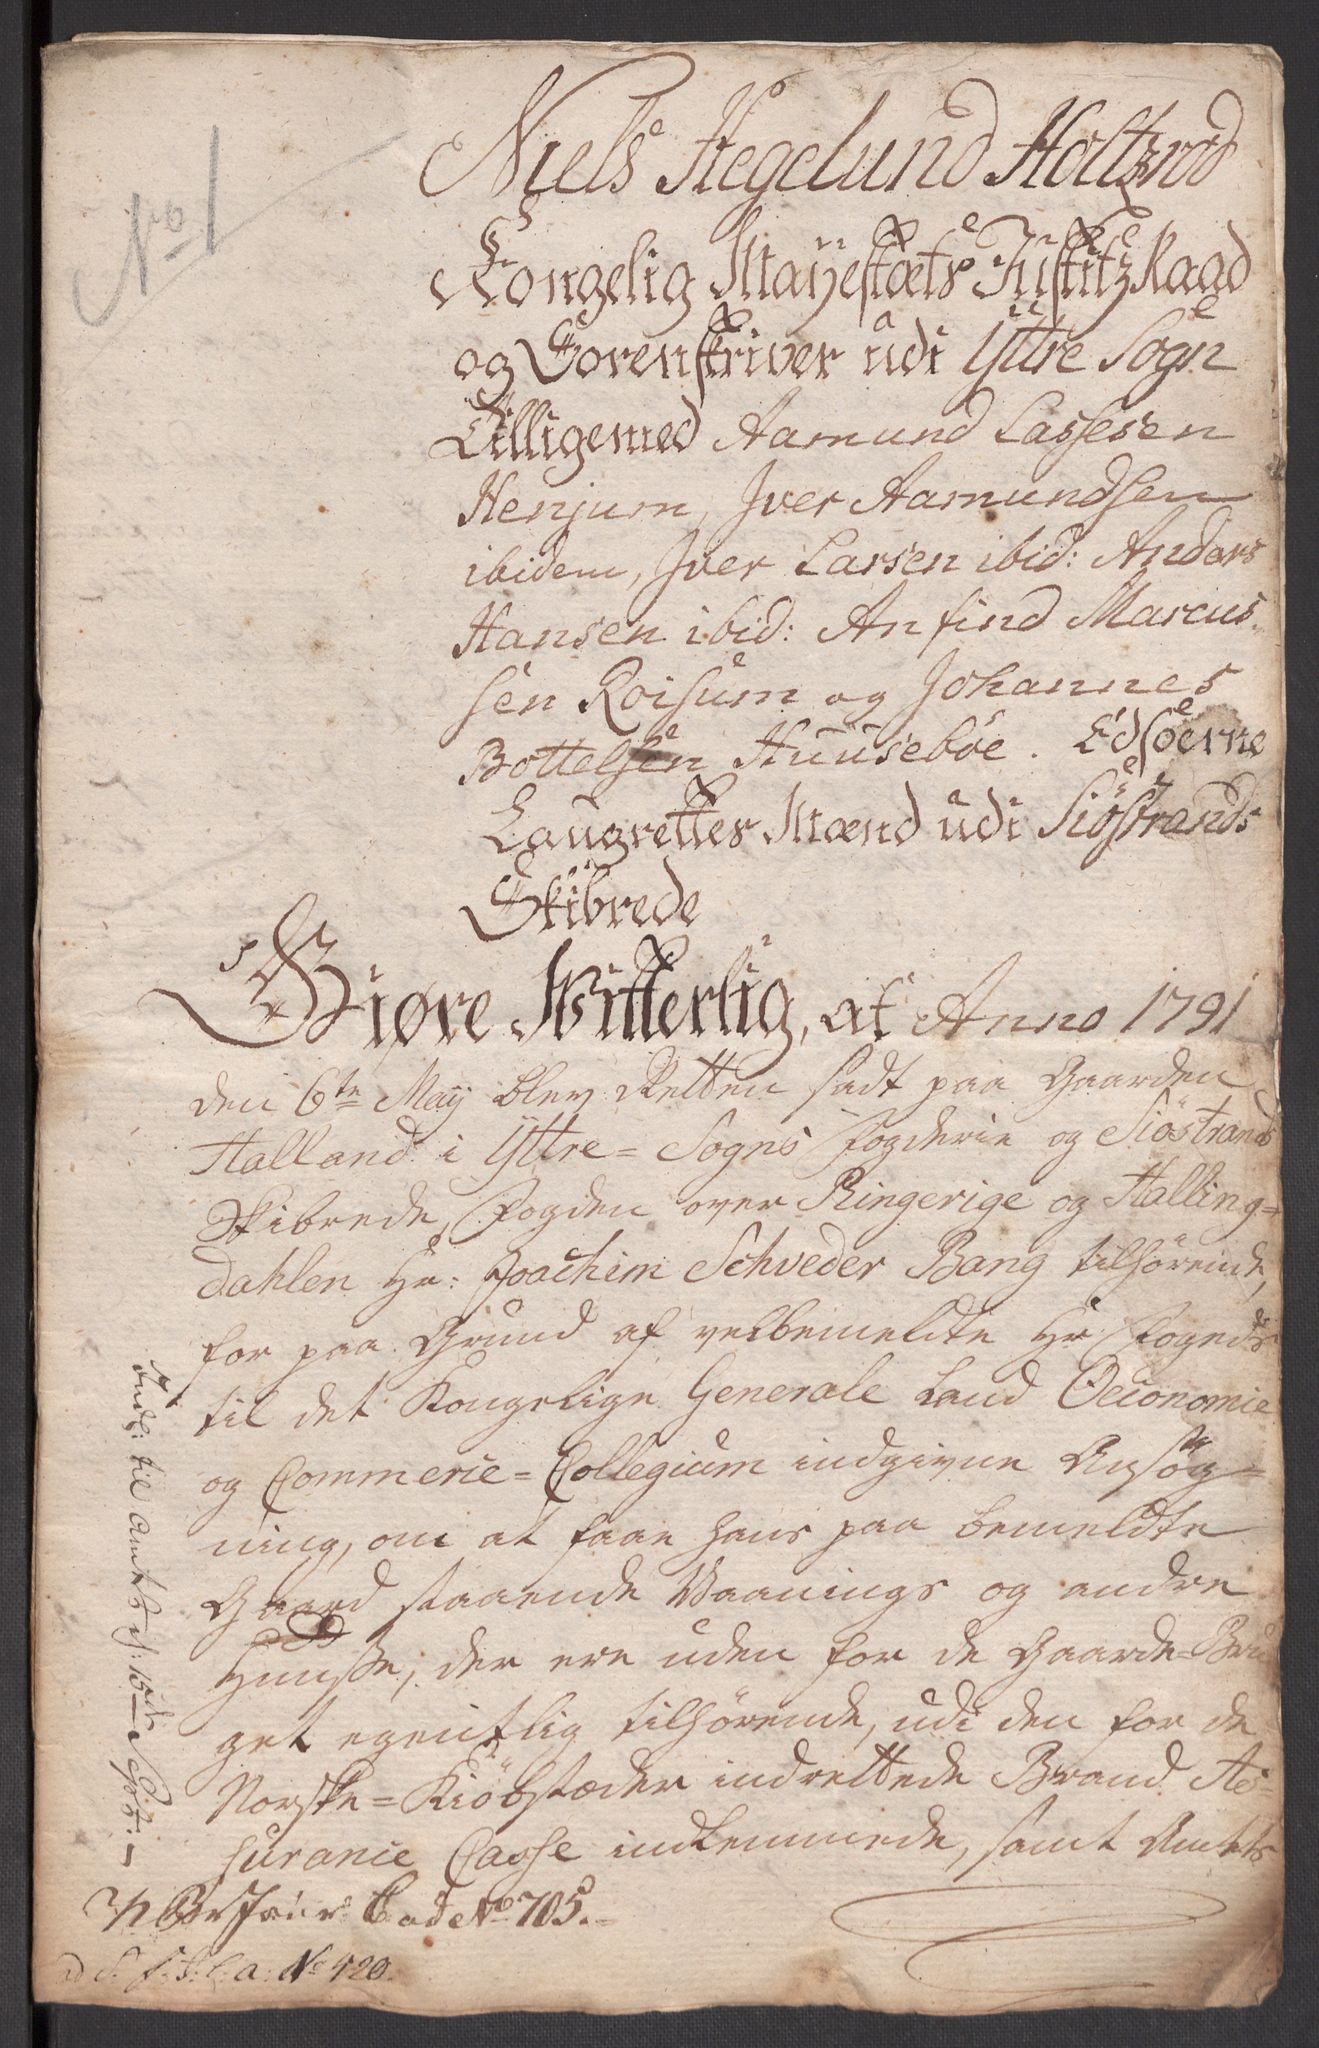 No 1
Niels Hegelund Holtzrod
Kongelig Mayestæts Justitz Raad
og Sorenskriver udi Yttre Sogn
Tilligemed Aamund Lassesen
Henjum, Iver Aamundsen
ibidem, Iver Larsen ibid: Anders
Hansen ibid: Anfind Marcus-
sen Roisum og Johannes
Bottelsen Huusebøe. Edsoerne
Laugrettes Mænd udi Siöstrands
Skibrede
Giøre Witterlig, at Anno 1791
den 6te May blev Retten sadt paa Gaarden
Halland i Yttre-Sogns Fogderie og Siöstrands
Skibrede, Fogden over Ringerige og Halling-
dahlen Hr: Joachim Schveder Bang tilhörende,
for paa Grund af velbemeldte Hr Fogeds
til det Kongelige Generale Land Oeconomie
og Commercie-Collegium indgivne Ansög-
ning, om at faae hans paa bemeldte
Gaard staaende Vaanings og andre
Huusse, der ere uden for de Gaarde-Bru
get egentlig tilhörende, udi den for de
Norske-Kiöbstæder indrettede Brand As-
surance Casse indlemmede, samt Amtets
No 705.
No 420.